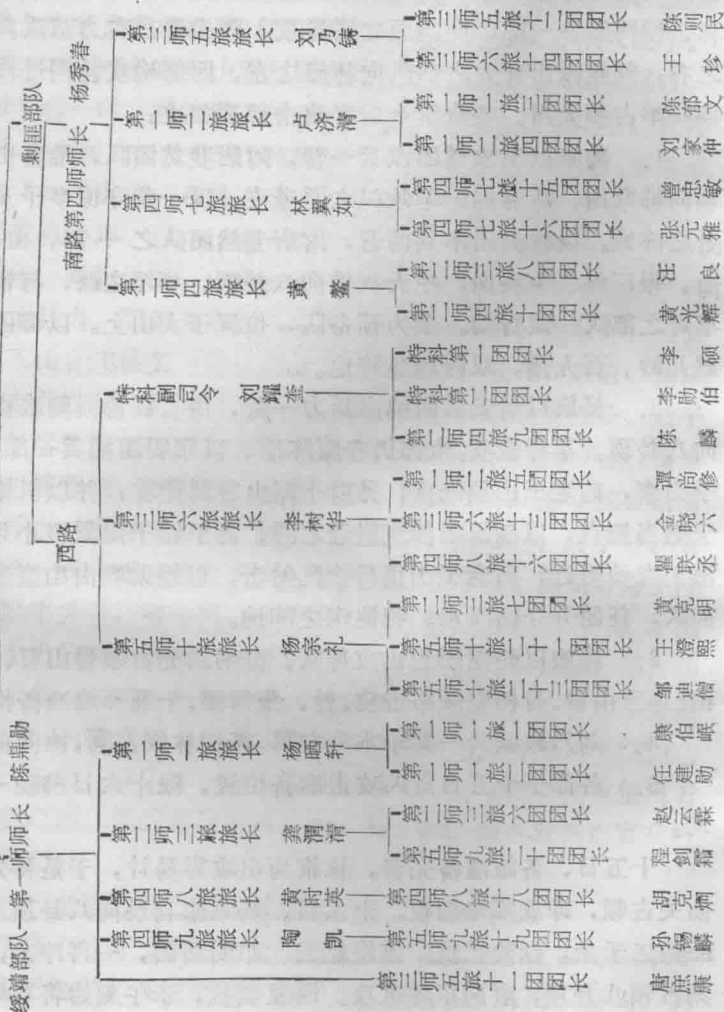 剿匪部队
南路第四师师长 杨秀春
第三师五旅旅长 刘乃铸
第三师五旅十二团团长 陈则民
第三师六旅十四团团长 王珍
第一师二旅旅长 卢济清
第一师一旅三团团长 陈郤文
第一师二旅四团团长 刘家仲
第四师七旅旅长 林翼如
第四师七旅十五团团长 曾思敏
第四师七旅十六团团长 张元雅
第二师四旅旅长 黄鳌
第二师三旅八团团长 汪良
第二师四旅十团团长 黄光辉
西路
特科副司令 刘耀奎
特科第一团团长 李硕
特科第二团团长 李勋伯
第二师四旅九团团长 陈麟
第三师六旅旅长 李树华
第一师二旅五团团长 谭尚修
第三师六旅十三团团长 金晓六
第四师八旅十六团团长 瞿联丞
第二师三旅七团团长 黄克明
第五师十旅旅长 杨宗礼
第五师十旅二十一团团长 王澄熙
第五师十旅二十三团团长 邹迪僧
绥靖部队 第一师师长 陈鼎勋
第一师一旅旅长 杨晒轩
第一师一旅一团团长 康伯岷
第一师一旅二团团长 任建勋
第二师三旅旅长 龚渭清
第二师三旅六团团长 赵云霖
第五师九旅二十团团长 程剑霜
第四师八旅旅长 黄时英
第四师八旅十八团团长 胡克倜
第四师九旅旅长 陶凯
第五师九旅十九团团长 孙锡麟
第三师五旅十一团团长 唐庶康